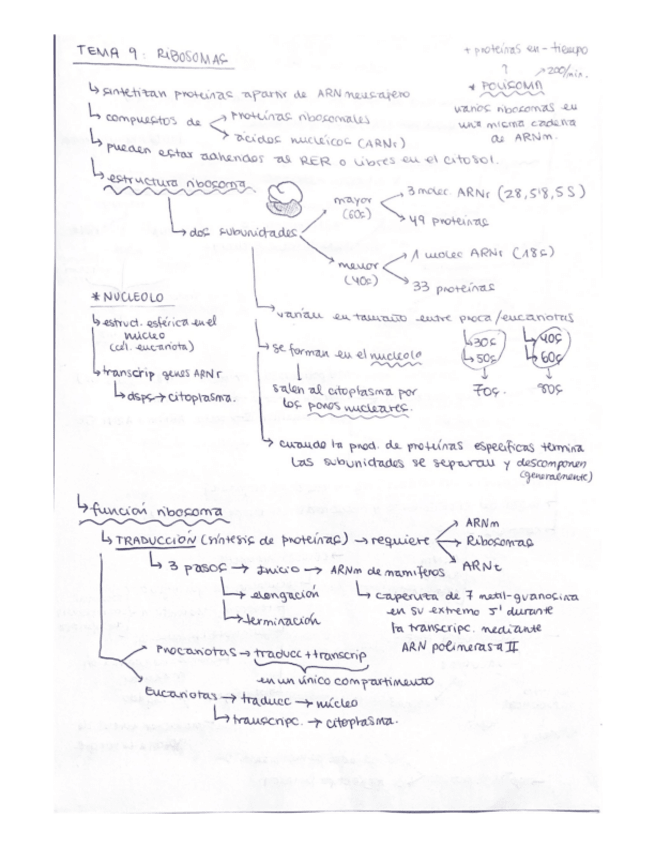 TEMA 9: RIBOSOMAS
+ proteínas en - tiempo
? ↗200/min.
* POLISOMA
varios ribosomas en
una misma cadena
de ARNm.
↳ sintetizan proteínas a partir de ARN mensajero
↳ compuestos de
proteínas ribosomales
ácidos nucleicos (ARNr)
↳ pueden estar adheridos al RER o libres en el citosol.
↳ estructura ribosoma
↳ dos subunidades
mayor
(60s)
3 molec. ARNr (28, 5'8, 5S)
49 proteínas
menor
(40s)
1 molec ARNr (18s)
33 proteínas
↳ varían en tamaño entre proca/eucariotas
↳ 30s
↳ 50s
↓
70s.
↳ 40s
↳ 60s
↓
80s
↳ se forman en el nucleolo
salen al citoplasma por
los poros nucleares.
↳ cuando la prod. de proteínas específicas termina
las subunidades se separan y descomponen
(generalmente)
* NUCLEOLO
↳ estruct. esférica en el
núcleo
(cél. eucariota)
↳ transcrip genes ARNr
↳ dsps → citoplasma.
↳ función ribosoma
↳ TRADUCCIÓN (síntesis de proteínas) → requiere
ARNm
Ribosomas
ARNt
↳ 3 pasos → Inicio → ARNm de mamíferos
↳ elongación
↳ terminación
↳ caperuza de 7 metil-guanosina
en su extremo 5' durante
la transcripc. mediante
ARN polimerasa II
Procariotas → traducc + transcrip
en un único compartimento
Eucariotas → traducc → núcleo
↳ transcripc. → citoplasma.